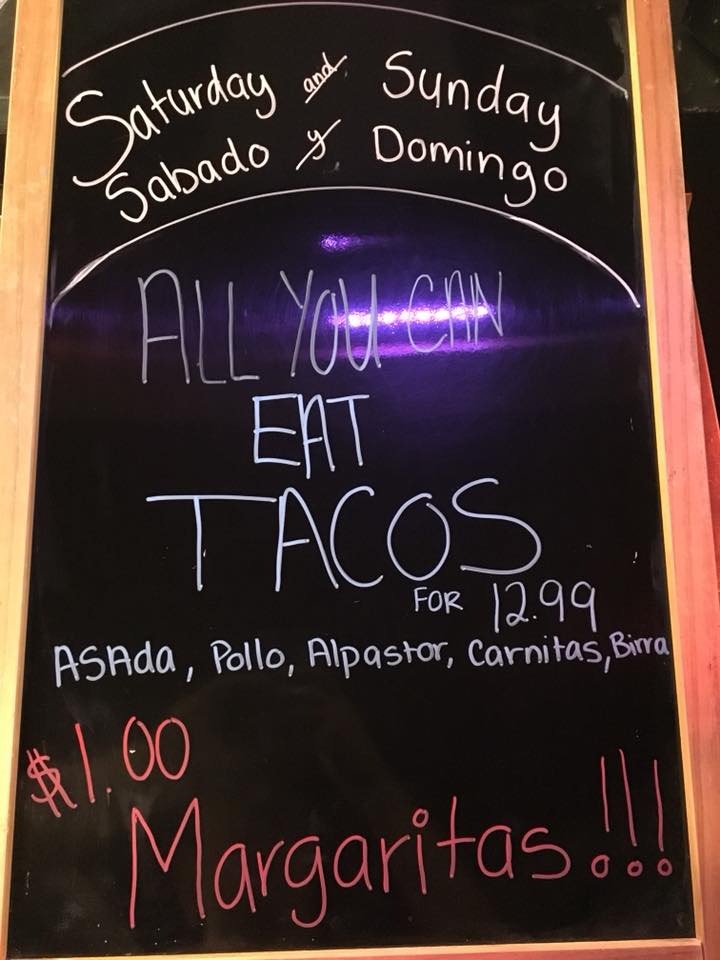 Saturday and Sunday
Sabado y Domingo
ALL YOU CAN
EAT
TACOS
FOR 12.99
ASAda, Pollo, Alpastor, Carnitas, Birra
$1.00
Margaritas!!!